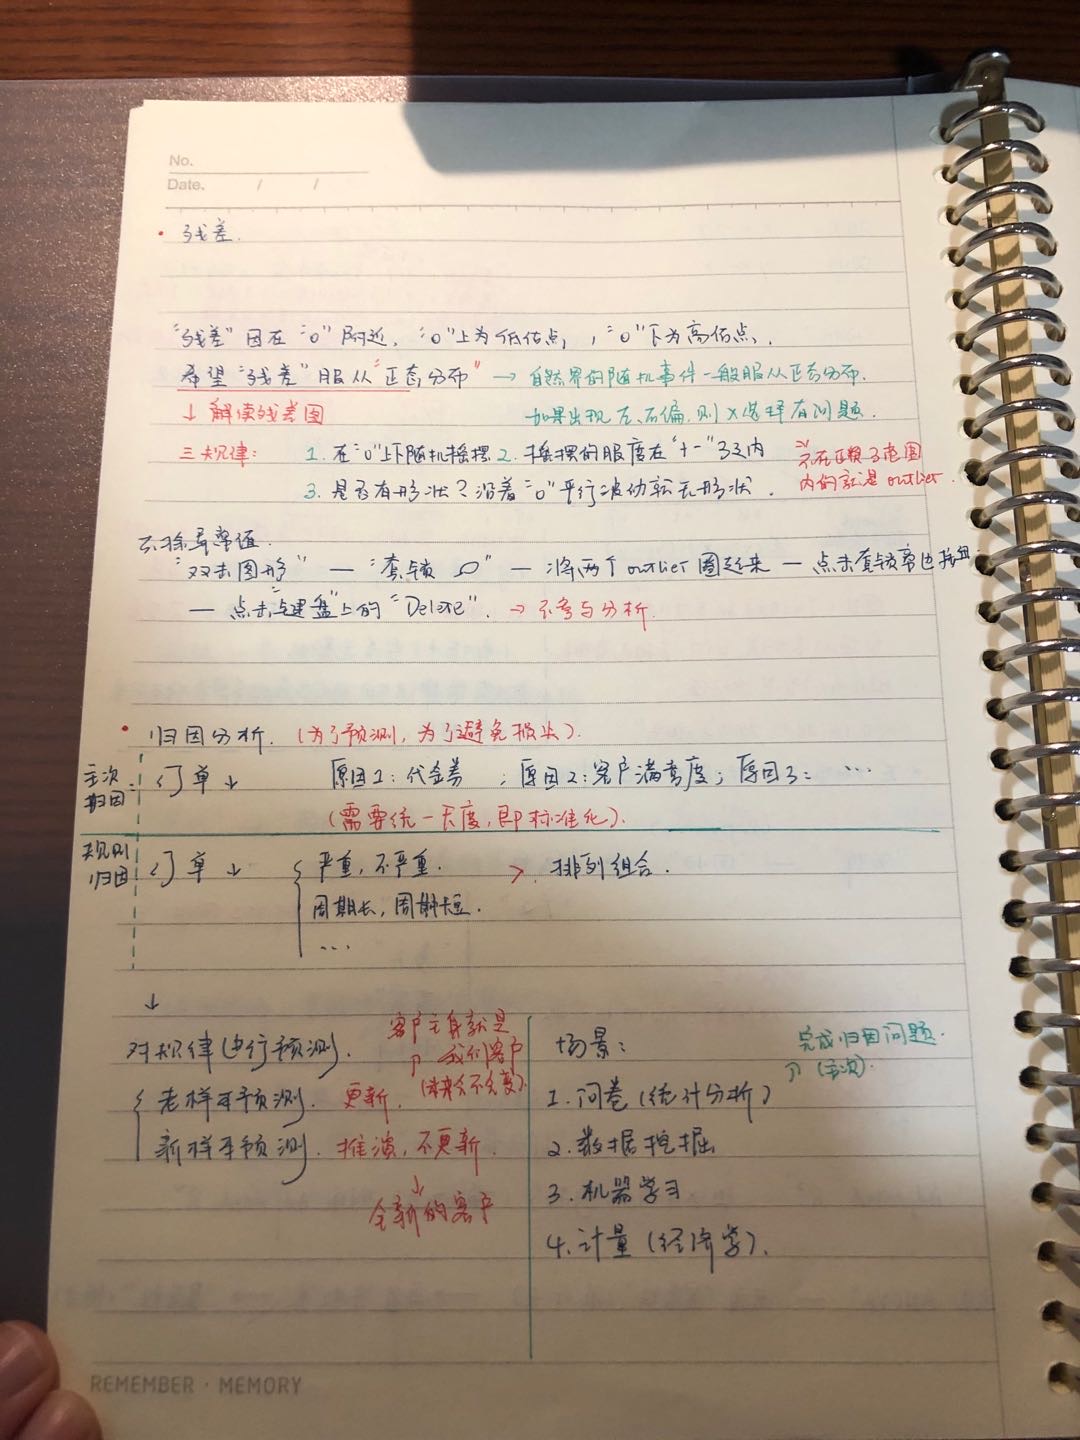 No.
Date. / /
• 残差.
"残差"因在"0"附近, "0"上为低估点, , "0"下为高估点.
希望"残差"服从"正态分布" → 自然界的随机事件一般服从正态分布.
↓ 解读残差图
如果出现左、右偏, 则X选择有问题.
三规律: 1. 在"0"上下随机摇摆 2. 摇摆的服度在"+-"3之内
3. 是否有形状? 沿着"0"平行波动就无形状.
只在正负3范围
内的就是outlier.
去除异常值.
"双击图形" — "套锁" — 将两个outlier圈起来 — 点击套锁旁边按钮
— 点击"键盘"上的"Delete". → 不参与分析.
• 归因分析. (为了预测, 为了避免损失).
主次
归因:
订单↓ 原因1: 代金券 ; 原因2: 客户满意度; 原因3: ...
(需要统一尺度, 即标准化).
规则
归因
订单↓ { 严重, 不严重. > 排列组合.
周期长, 周期短.
...
↓
对规律进行预测.
客户主身就是
↗ 我们客户
(未来会不会变).
老样本预测. 更新.
新样本预测. 推演, 不更新.
↓
全新的客户
场景:
完成归因问题.
↗ (主次).
1. 问卷 (统计分析)
2. 数据挖掘
3. 机器学习
4. 计量 (经济学).
REMEMBER · MEMORY